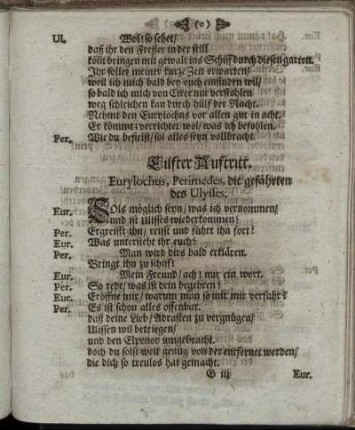 (o)
Ul. Wol! so sehet/
daß ihr den Fresser in der still
könt bringen mit gewalt ins Schiff durch diesen garten.
Ihr sollet meiner kurze Zeit erwarten/
weil ich mich bald bey euch einfinden wil/
so bald ich mich von hier nur verstohlen
weg schleichen kan durch hülf der Nacht.
Nehmt den Eurylochus vor allen gut in acht.
Er kommt: verrichtet wol/ was ich befohlen.
Per. Wie du befielst/ sol alles seyn vollbracht.
Eilfter Auftritt.
Eurylochus, Perimedes, die gefährten
des Ulysses.
Eur. Sols möglich seyn/ was ich vernommen/
und ist Ulisses wiederkommen?
Per. Ergreifft ihn/ reist und führt ihn fort!
Eur. Was untersteht ihr euch?
Per. Man wird dirs bald erklären.
Bringt ihn zu schiff!
Eur. Mein Freund/ ach! nur ein wort.
Per. So rede/ was ist dein begehren?
Eur. Eröffne mir/ warum man so mit mir verfahr?
Per. Es ist schon alles offenbar.
daß deine Lieb/ Adrasten zu vergnügen/
Ulissen wil betriegen/
und den Elpenor umgebracht.
doch du solst weit genug von der entfernet werden/
die dich so treulos hat gemacht.
G iij Eur.